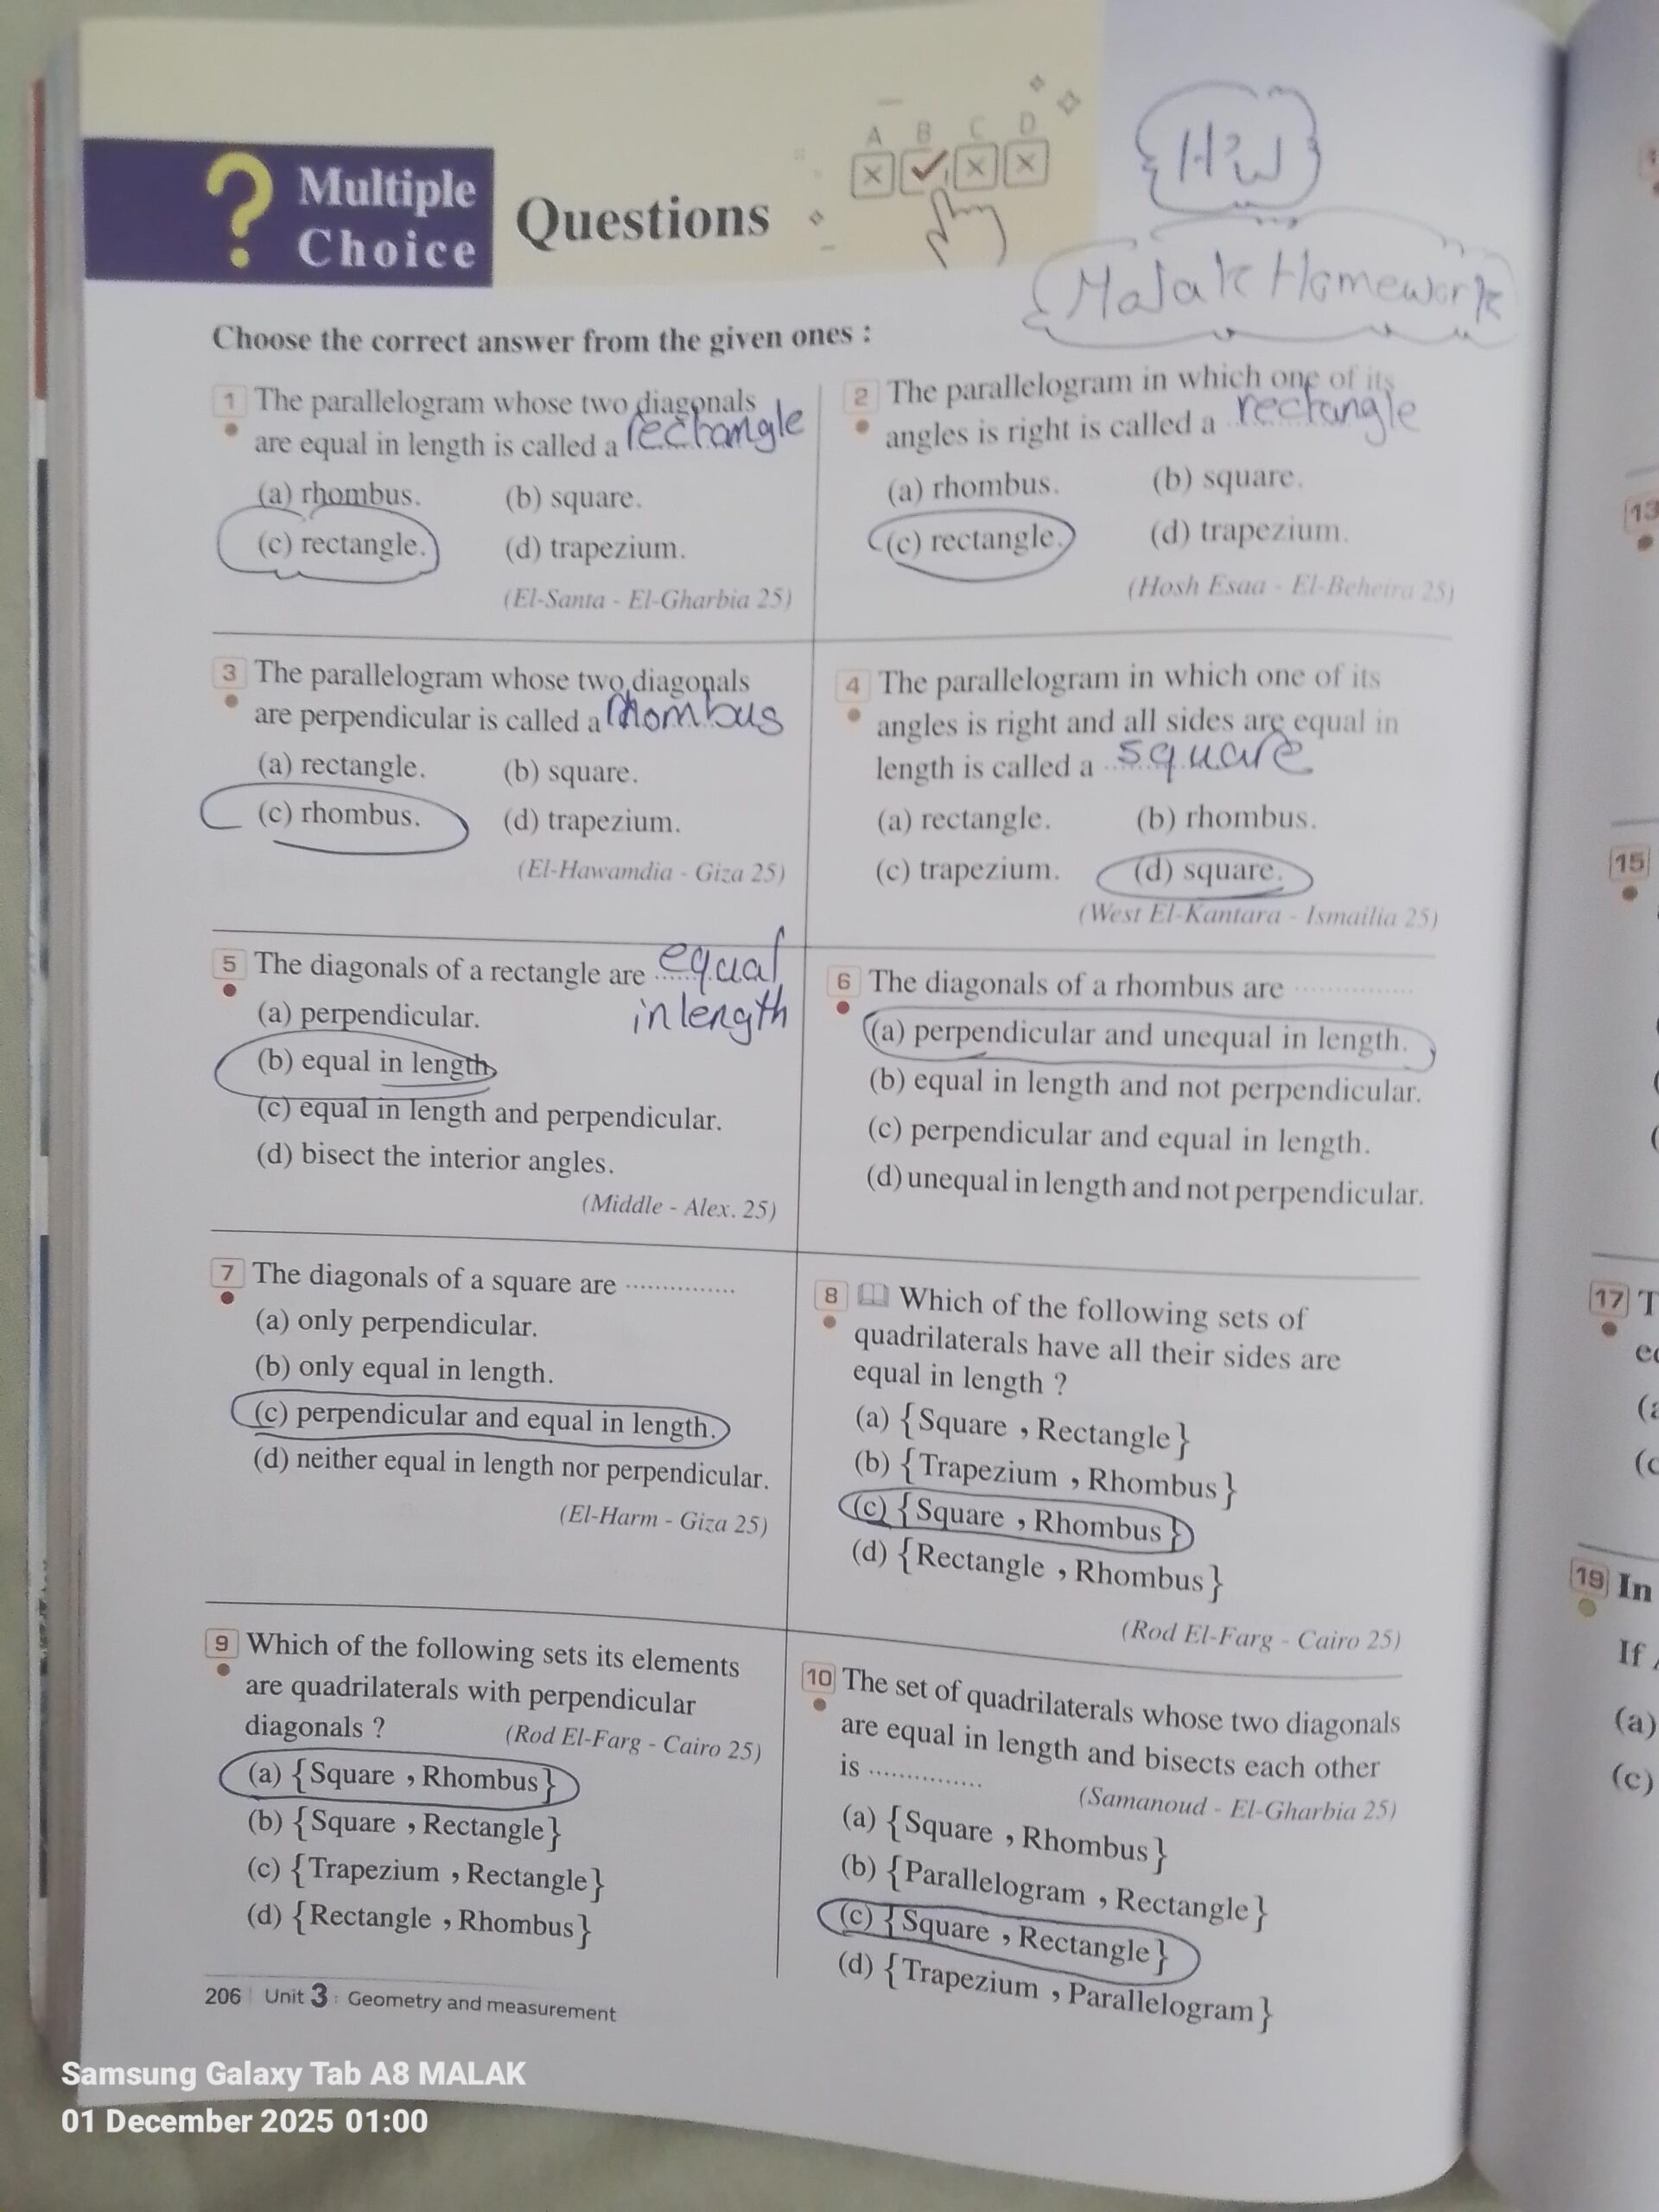 A B C D
H.W
Malak Homework
? Multiple
Choice
Questions
Choose the correct answer from the given ones :
1 The parallelogram whose two diagonals
are equal in length is called a rectangle
(a) rhombus. (b) square.
(c) rectangle. (d) trapezium.
(El-Santa - El-Gharbia 25)
2 The parallelogram in which one of its
angles is right is called a rectangle
(a) rhombus. (b) square.
(c) rectangle. (d) trapezium.
(Hosh Esaa - El-Beheira 25)
3 The parallelogram whose two diagonals
are perpendicular is called a rhombus
(a) rectangle. (b) square.
(c) rhombus. (d) trapezium.
(El-Hawamdia - Giza 25)
4 The parallelogram in which one of its
angles is right and all sides are equal in
length is called a square
(a) rectangle. (b) rhombus.
(c) trapezium. (d) square.
(West El-Kantara - Ismailia 25)
5 The diagonals of a rectangle are equal
in length
(a) perpendicular.
(b) equal in length
(c) equal in length and perpendicular.
(d) bisect the interior angles.
(Middle - Alex. 25)
6 The diagonals of a rhombus are ..............
(a) perpendicular and unequal in length.
(b) equal in length and not perpendicular.
(c) perpendicular and equal in length.
(d) unequal in length and not perpendicular.
7 The diagonals of a square are ..............
(a) only perpendicular.
(b) only equal in length.
(c) perpendicular and equal in length.
(d) neither equal in length nor perpendicular.
(El-Harm - Giza 25)
8 Which of the following sets of
quadrilaterals have all their sides are
equal in length ?
(a) {Square , Rectangle}
(b) {Trapezium , Rhombus}
(c) {Square , Rhombus}
(d) {Rectangle , Rhombus}
(Rod El-Farg - Cairo 25)
9 Which of the following sets its elements
are quadrilaterals with perpendicular
diagonals ? (Rod El-Farg - Cairo 25)
(a) {Square , Rhombus}
(b) {Square , Rectangle}
(c) {Trapezium , Rectangle}
(d) {Rectangle , Rhombus}
10 The set of quadrilaterals whose two diagonals
are equal in length and bisects each other
is ..............
(Samanoud - El-Gharbia 25)
(a) {Square , Rhombus}
(b) {Parallelogram , Rectangle}
(c) {Square , Rectangle}
(d) {Trapezium , Parallelogram}
206 Unit 3 : Geometry and measurement
13
15
17 T
(a
(c
19 In
If
(a)
(c)
Samsung Galaxy Tab A8 MALAK
01 December 2025 01:00